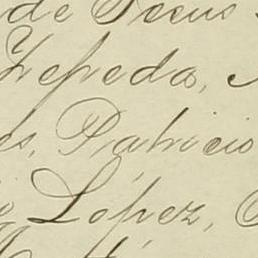 de Jesus
Zepeda,
s, Patricio
Lopez,